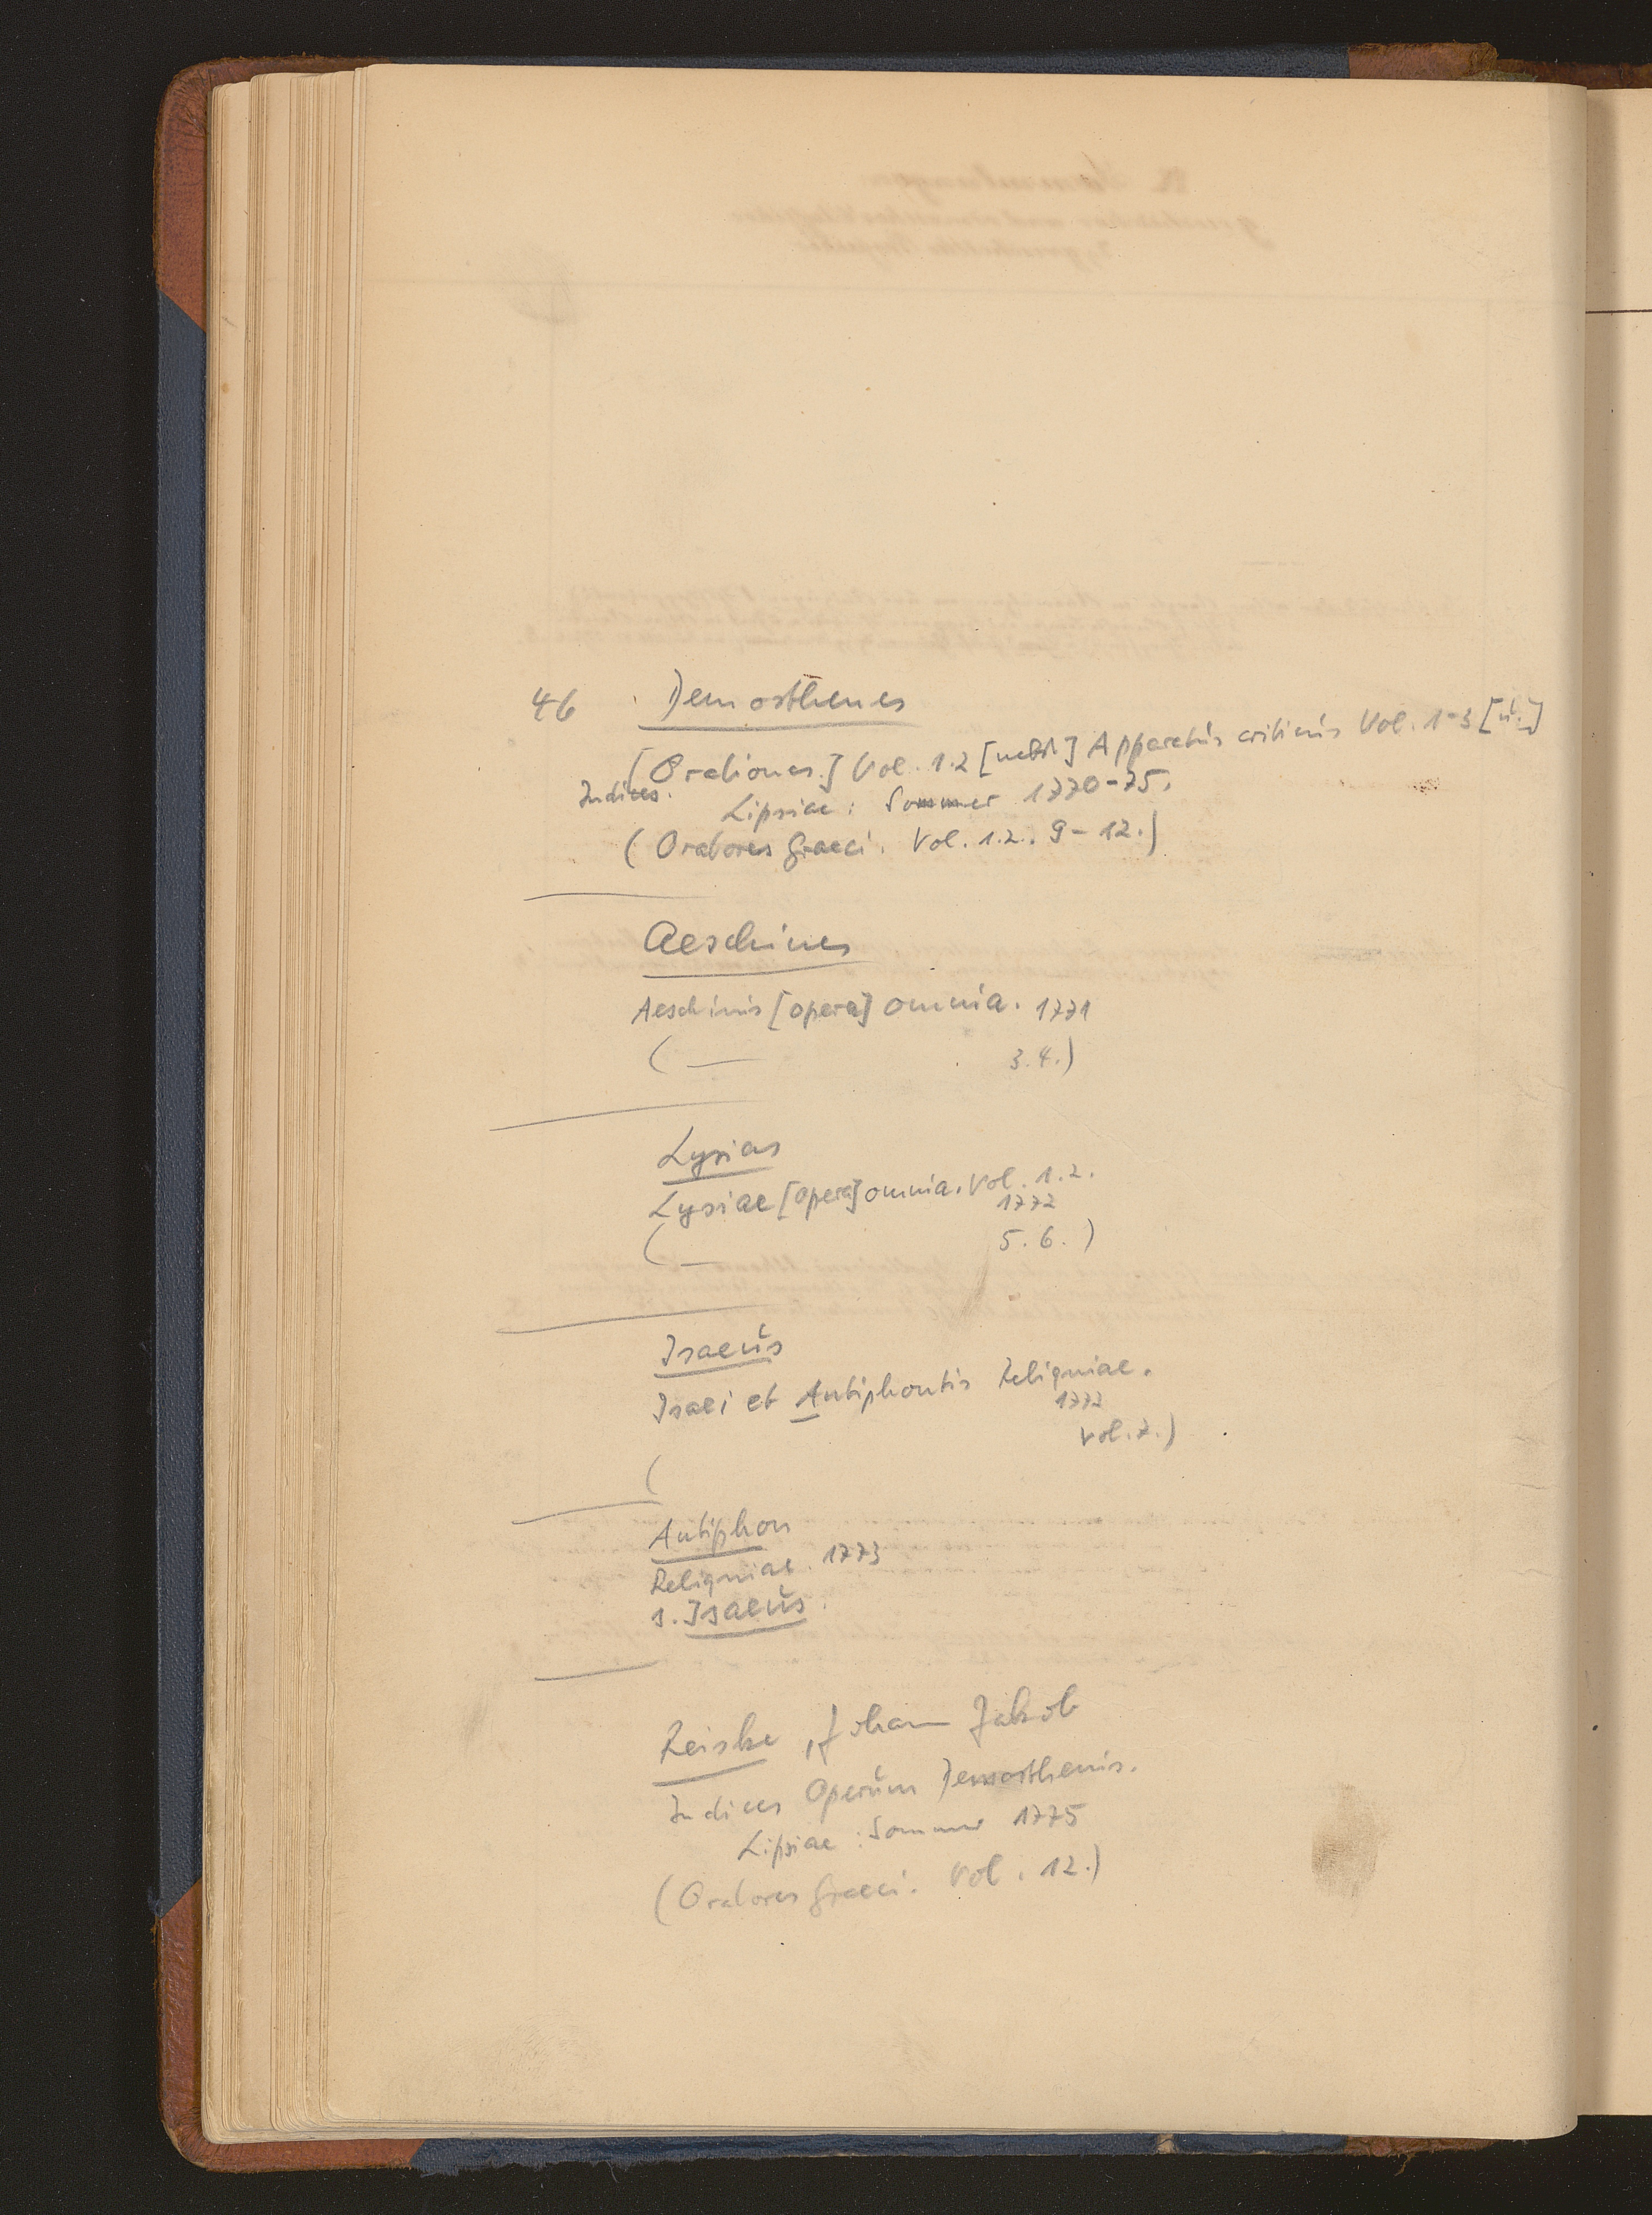 46 Demosthenes
[Orationes.] Vol. 1.2 [nebst] Apparatus criticus Vol. 1-3 [u.]
Indices. Lipsiae: Sommer 1770-75.
(Oratores Graeci. Vol. 1.2. 9-12.)
Aeschines
Aeschinis [opera] omnia. 1771
( — 3.4.)
Lysias
Lysiae [opera] omnia. Vol. 1.2.
1772
( — 5.6.)
Isaeus
Isaei et Antiphontis Reliquiae.
1773
( Vol. 7.)
Antiphon
Reliquiae. 1773
s. Isaeus
Reiske, Johann Jakob
Indices Operum Demosthenis.
Lipsiae: Sommer 1775
(Oratores Graeci. Vol. 12.)